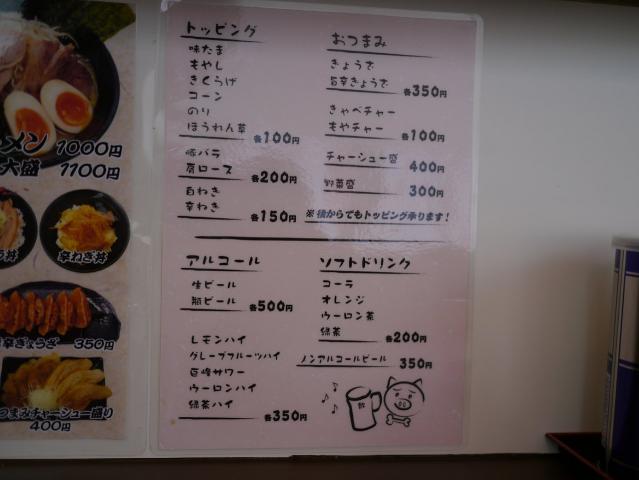 メン 1000円
大盛 1100円
辛ねぎ丼
辛ぎょうざ 350円
つまみチャーシュー盛り
400円
トッピング
味たま
もやし
きくらげ
コーン
のり
ほうれん草
各100円
豚バラ
肩ロース
各200円
白ねぎ
辛ねぎ
各150円
おつまみ
ぎょうざ
旨辛ぎょうざ
各350円
きゃべチャー
もやチャー
各100円
チャーシュー盛 400円
野菜盛 300円
※後からでもトッピング承ります!
アルコール
生ビール
瓶ビール
各500円
レモンハイ
グレープフルーツハイ
巨峰サワー
ウーロンハイ
緑茶ハイ
各350円
ソフトドリンク
コーラ
オレンジ
ウーロン茶
緑茶
各200円
ノンアルコールビール 350円